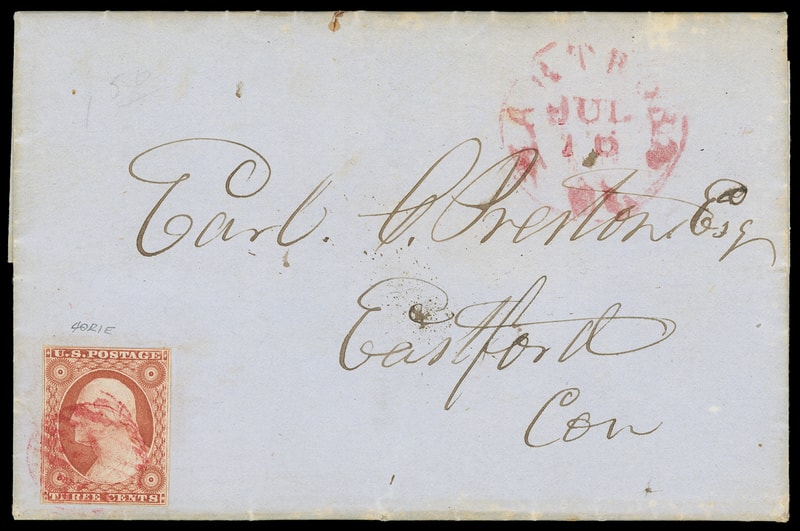 HARTFORD
JUL
16
Earl. C. Preston. Esq
Eastford
Con
40R1E
U.S. POSTAGE
THREE CENTS